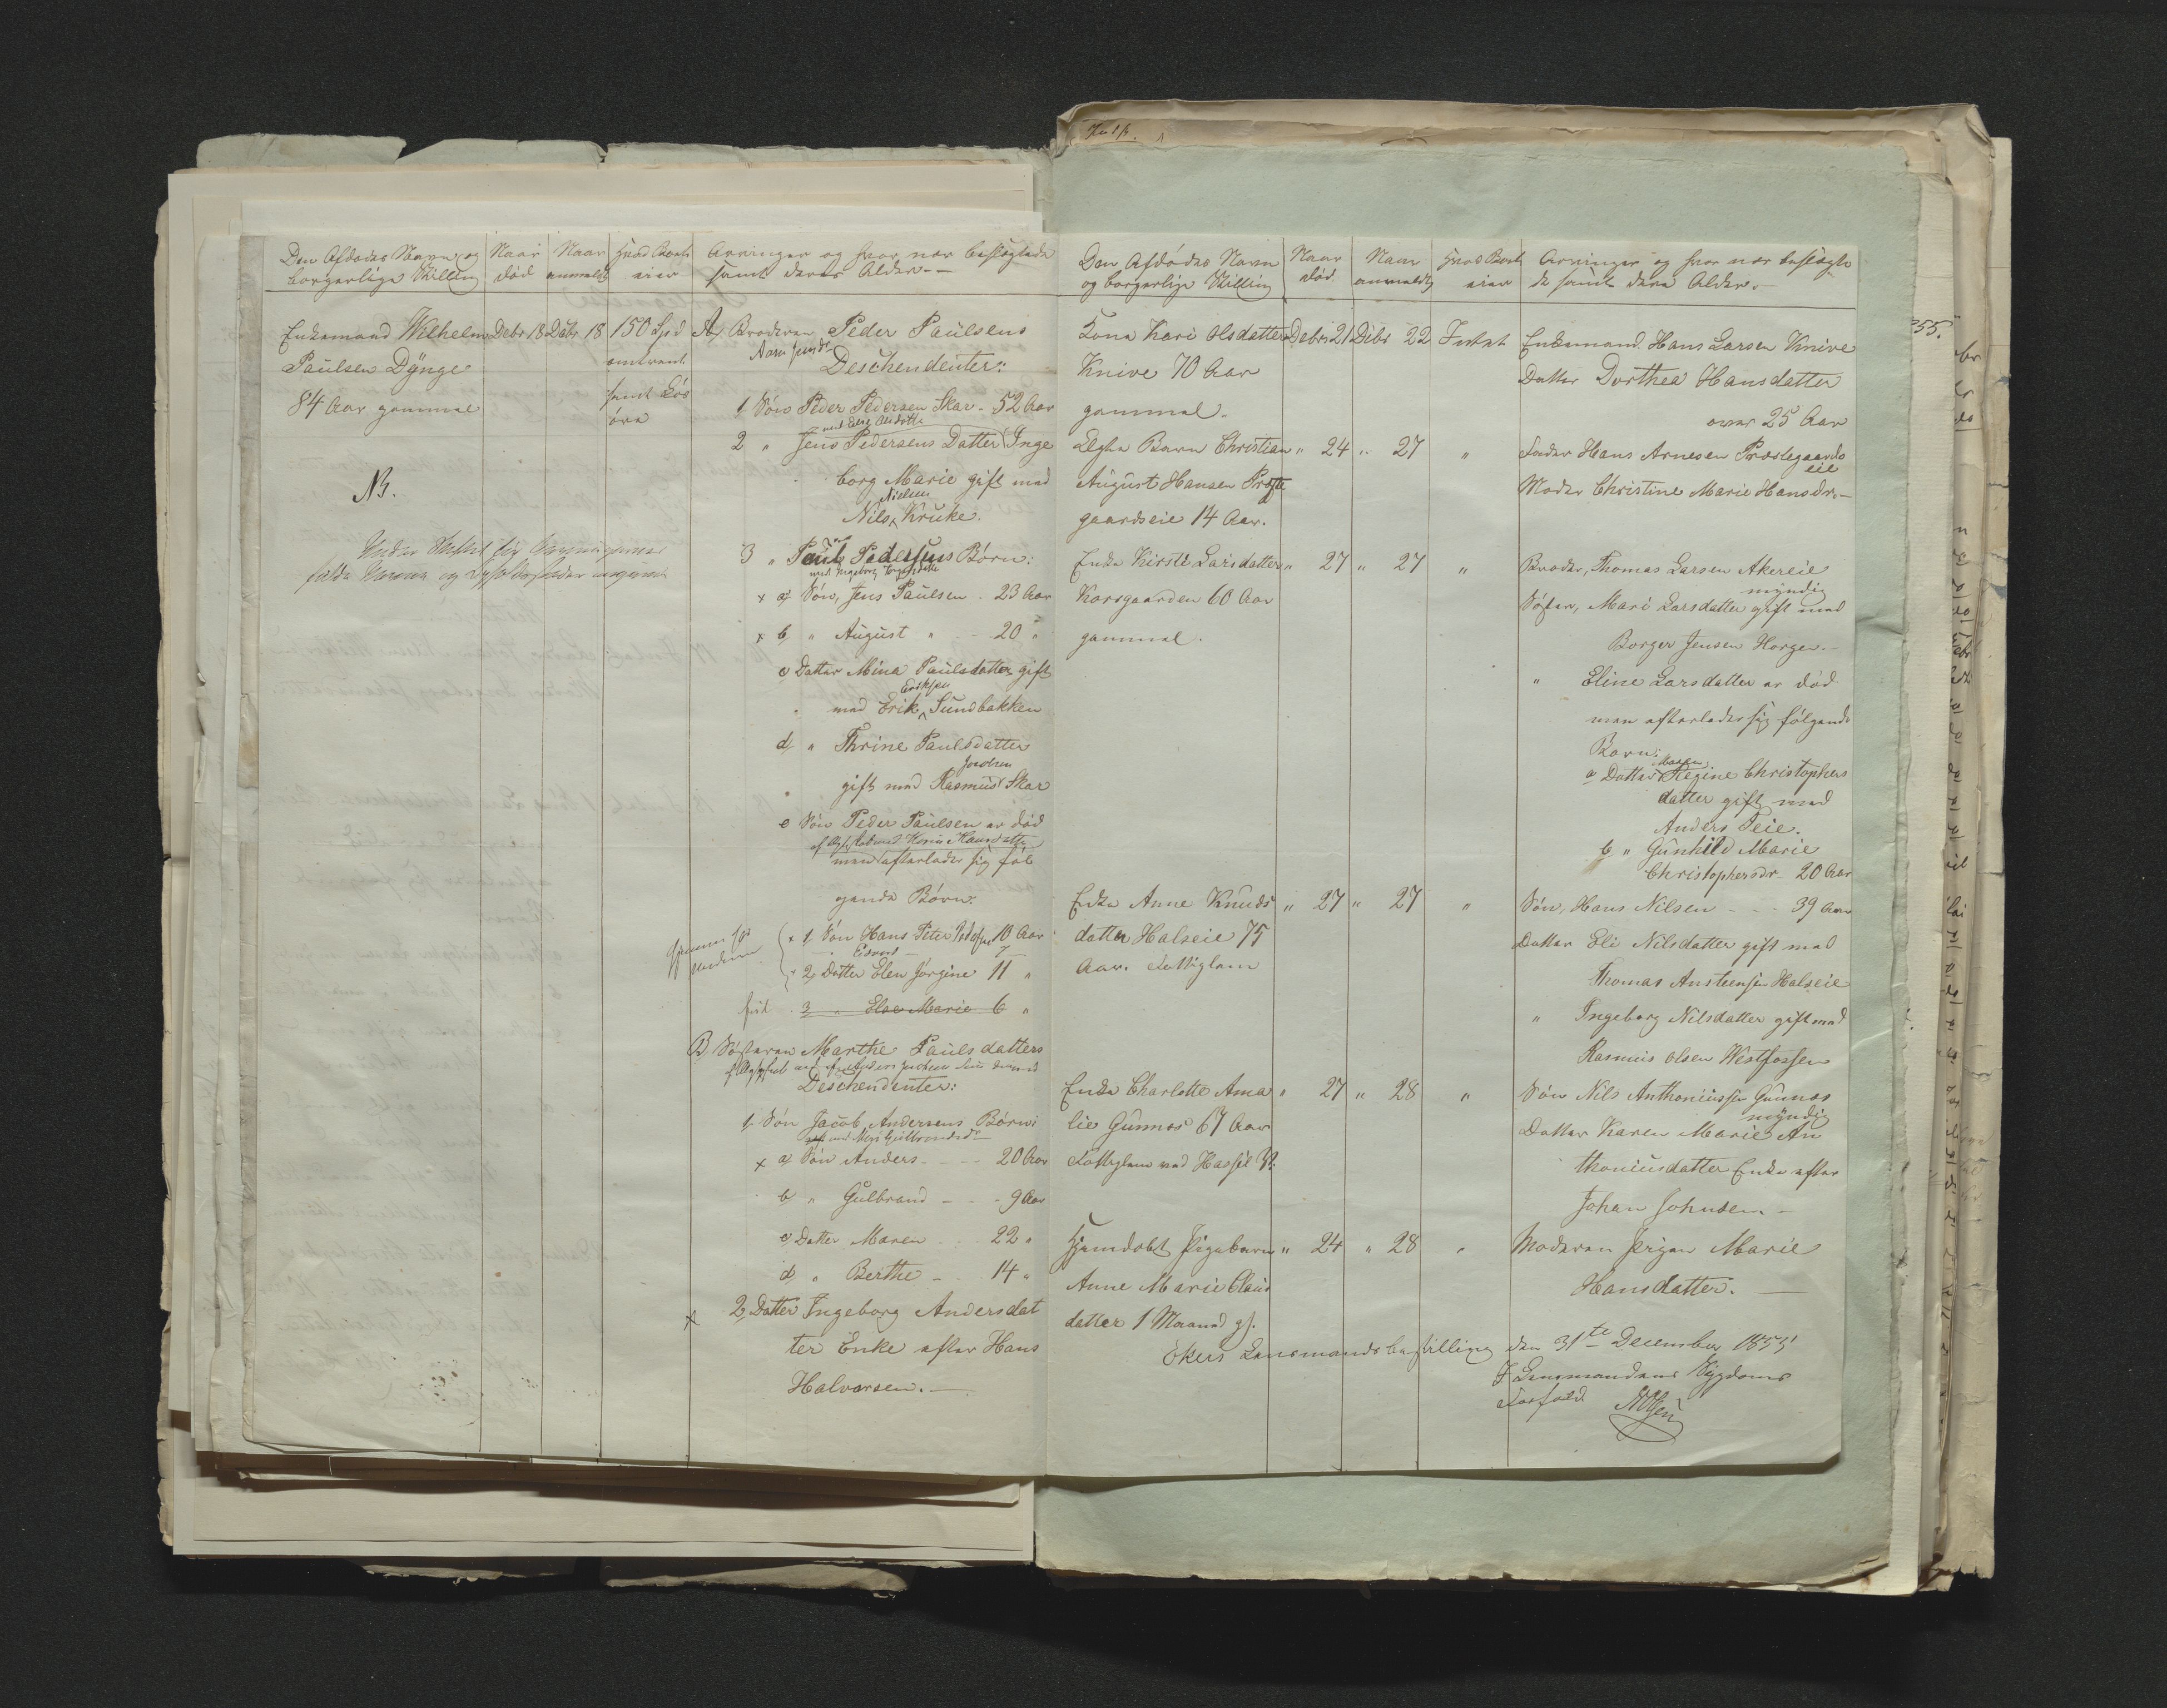 Den Afdødes Navn og borgerlige Stilling
Naar død
Naar anmeldt
Hvad Boet eier
Arvinger og hvor nær beslægtede samt deres Alder
Enkemand Wilhelm
Paulsen Dÿnge
84 Aar gammel
Debr 18
Debr 18
150 Spd
omtrent
samt Løs
øre
NB.
A, Broderen Peder Paulsens
Deschendenter:
1 Søn Peder Pedersen Skar - 52 Aar
2 " Jens Pedersens Datter Inge
borg Marie gift med
Nielsen
Nils Kruke.
3 " Paul Pedersens Børn:
x a, Søn, Jens Paulsen - 23 Aar
x b, " August " - 20 "
c Datter Mina Paulsdatter gift
Eriksen
med Erik Sundbakken
d, " Thrine Paulsdatter
gift med Rasmus Skar
e Søn Peder Paulsen er død
men efterlader sig føl
gende Børn:
x 1, Søn Hans Peter 10 Aar
7
x 2, Datter Elen Jørgine 11 "
3 " Else Marie 6 "
B Søsteren Marthe Pauls datters
Deschendenter:
1, Søn Jacob Andersens Børn:
x a, Søn Anders - 20 Aar
b " Gulbrand - - 9 Aar
c, Datter Maren - 22 "
d, " Berthe - 14 "
x 2, Datter Ingeborg Andersdat
ter Enke efter Hans
Halvorsen. -
Den Afdødes Navn og borgerlige Stilling
Naar død
Naar anmeldt
Hvad Boet eier
Arvinger og hvor nær beslægte de samt dere Alder. -
Kone Kari Olsdatter
Knive 70 Aar
gammel.
Debr 21
Debr 22
Intet
Enkemand Hans Larsen Knive
Datter Dorthea Hansdatter
over 25 Aar
Ægte Barn Christian
August Hansen Præste
gaardseie 14 Aar.
" 24
" 27
"
Fader Hans Arnesen Præstegaards
eie
Moder Christine Marie Hansdr. -
Enke Kirsti Larsdatter
Korsgaarden 60 Aar
gammel.
" 27
" 27
"
Broder, Thomas Larsen Akereie
myndig
Søster, Mari Larsdatter gift med
Borger Jensen Horgen. -
" Eline Larsdatter er død
men efterlader sig følgende
Børn:
a Datter Regine Christophers
datter gift med
Anders Teie.
b " Gunhild Marie
Christophersdr. 20 Aar
Enke Anne Knuds
datter Halseie 75
Aar. Fattiglem
" 27
" 27
"
Søn, Hans Nilsen - - 39 Aar
Datter Eli Nilsdatter gift med
Thomas Austeensen Halseie
" Ingeborg Nilsdatter gift med
Rasmus Olsen Westfossen
Enke Charlotte Ama
lie Gunnes 67 Aar
Fattiglem ved Hassel V.
" 27
" 28
"
Søn Nils Anthoniussen Gunnes
myndig
Datter Karen Marie An
thoniusdatter Enke efter
Johan Johnsen -
Hjemdøbt Pigebarn
Anne Marie Claus
datter 1 Maaned gl.
" 24
" 28
"
Moderen Pigen Marie
Hansdatter. -
Ekers Lensmandsbestilling den 31te December 1855
I Lensmandens Sygdoms
Forfald
55.